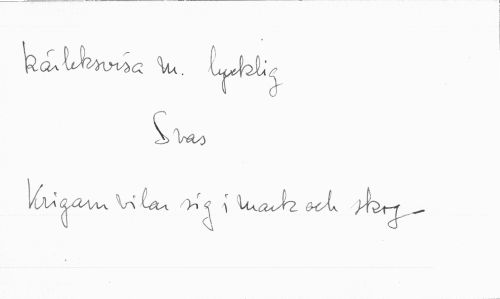 Kärleksvisa m. lycklig
Svas
Krigarn vilar sig i mark och skog –